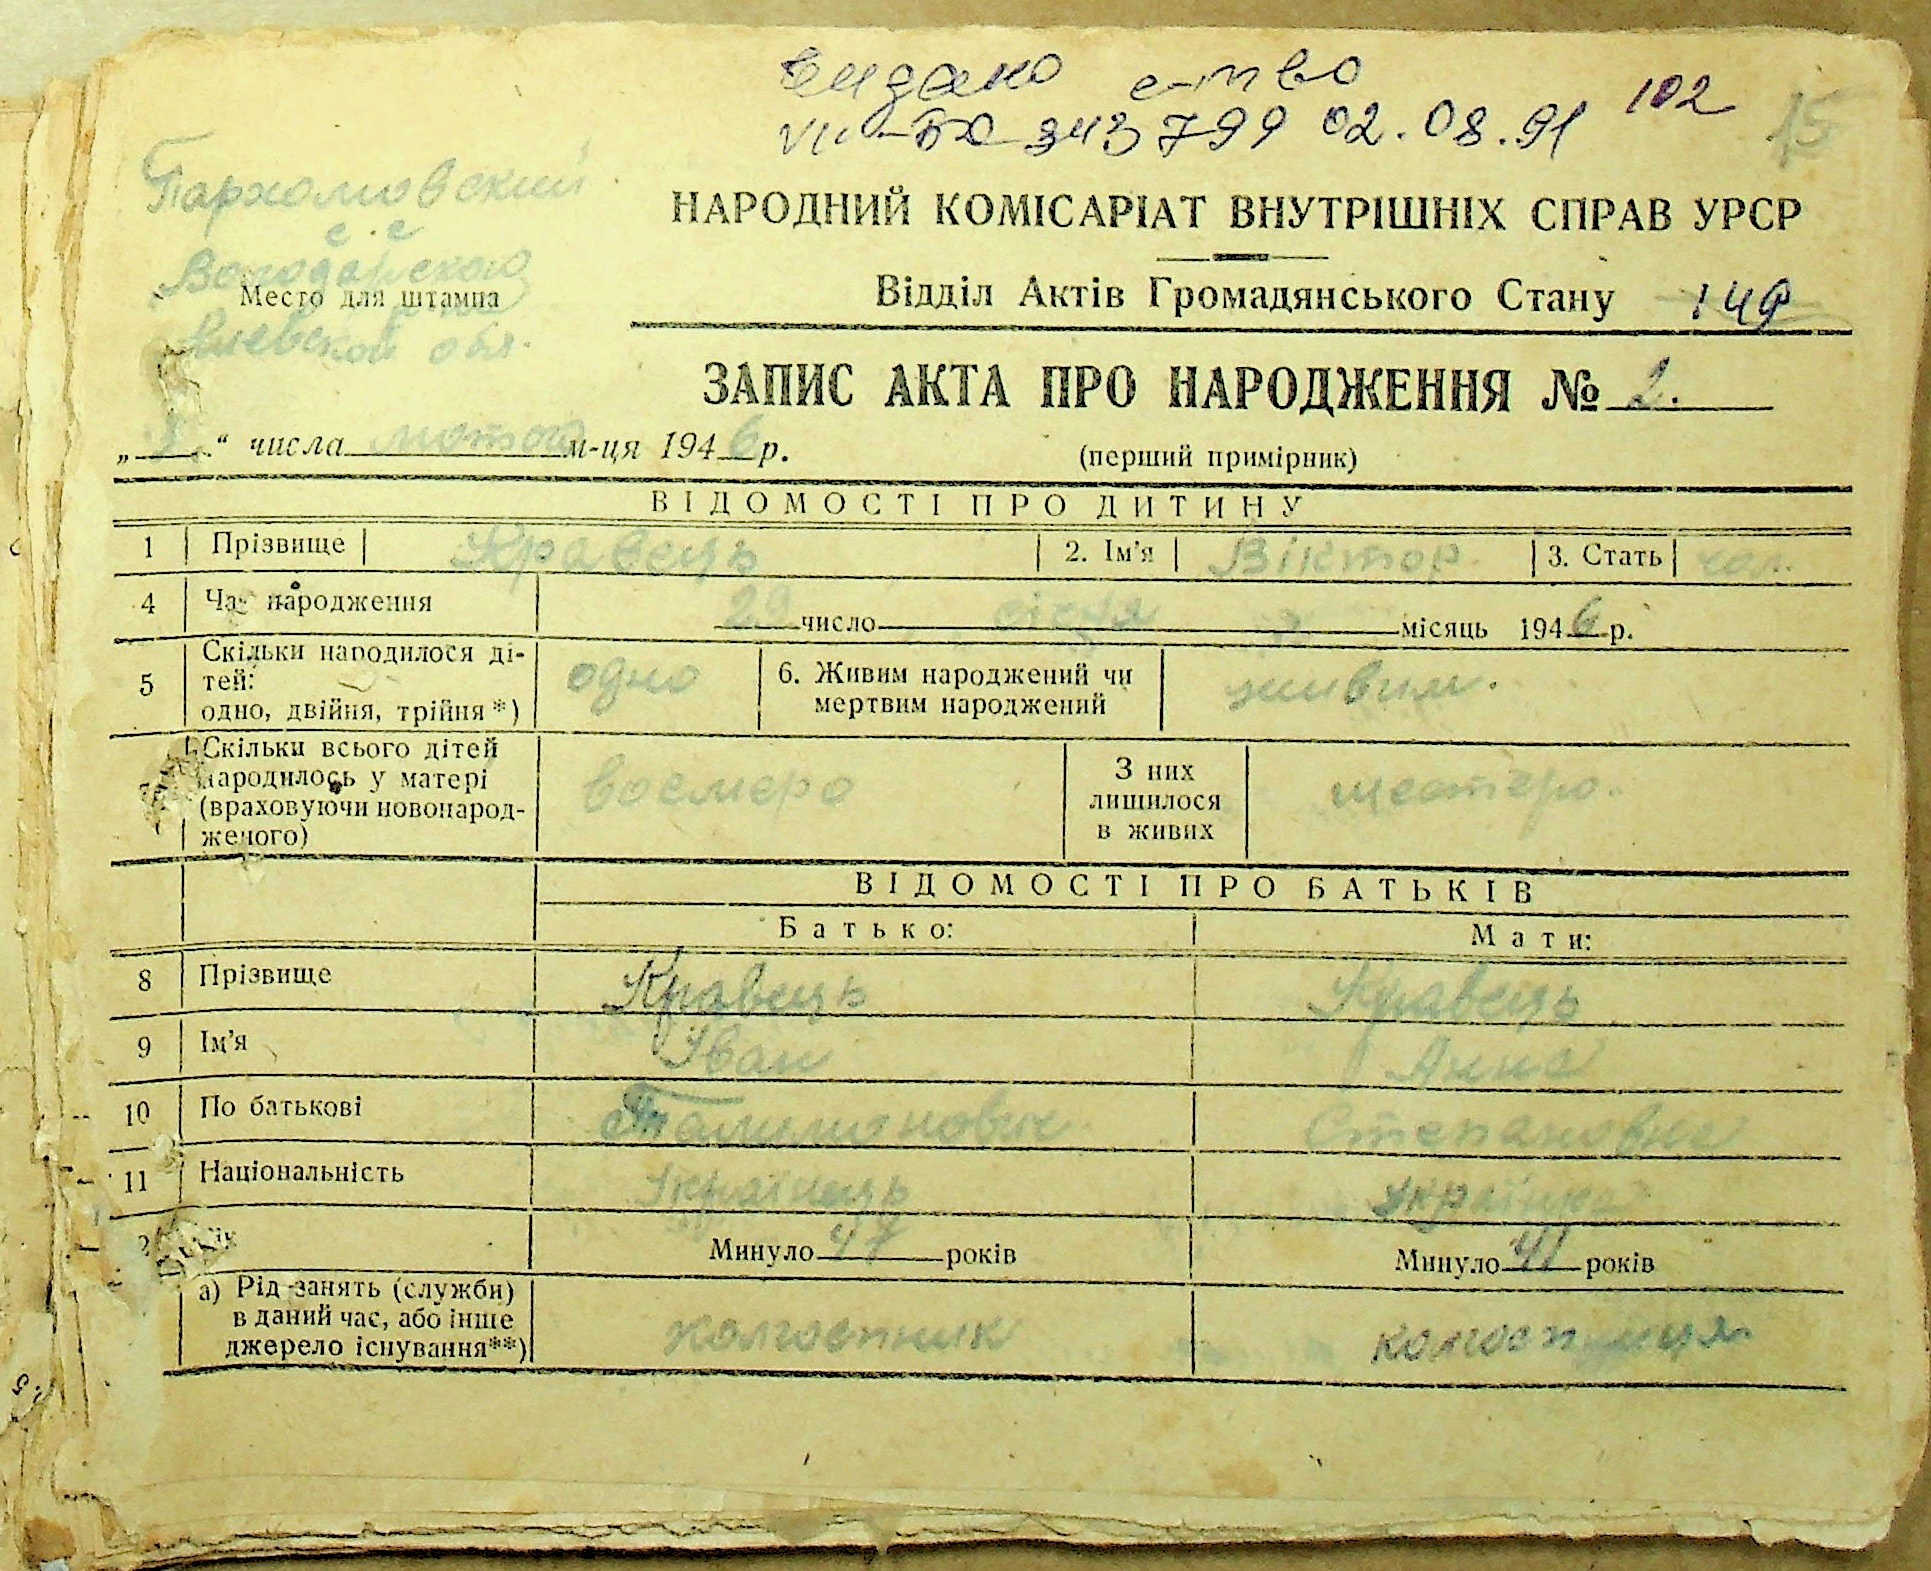 Видано с-тво
VII-БК 343799 02.08.91 102 15
Пархомовский
с.с
Володарского
Место для штампа
Киевской обл.
НАРОДНИЙ КОМІСАРІАТ ВНУТРІШНІХ СПРАВ УРСР
Відділ Актів Громадянського Стану 149
ЗАПИС АКТА ПРО НАРОДЖЕННЯ № 2.
" " числа лютого м-ця 1946 р.
(перший примірник)
ВІДОМОСТІ ПРО ДИТИНУ
1 Прізвище Кравець 2. Ім'я Віктор 3. Стать чол.
4 Час народження 29 число січня місяць 1946 р.
5 Скільки народилося ді-
тей:
одно, двійня, трійня *) одно
6. Живим народжений чи
мертвим народжений живим.
Скільки всього дітей
народилось у матері
(враховуючи новонарод-
женого) восмеро
З них
лишилося
в живих шестеро.
ВІДОМОСТІ ПРО БАТЬКІВ
Батько: Мати:
8 Прізвище Кравець Кравець
9 Ім'я Іван Анна
10 По батькові Степановна
11 Національність Українець Українка
Минуло 47 років Минуло 41 років
а) Рід занять (служби)
в даний час, або інше
джерело існування**) колгоспник колгоспниця